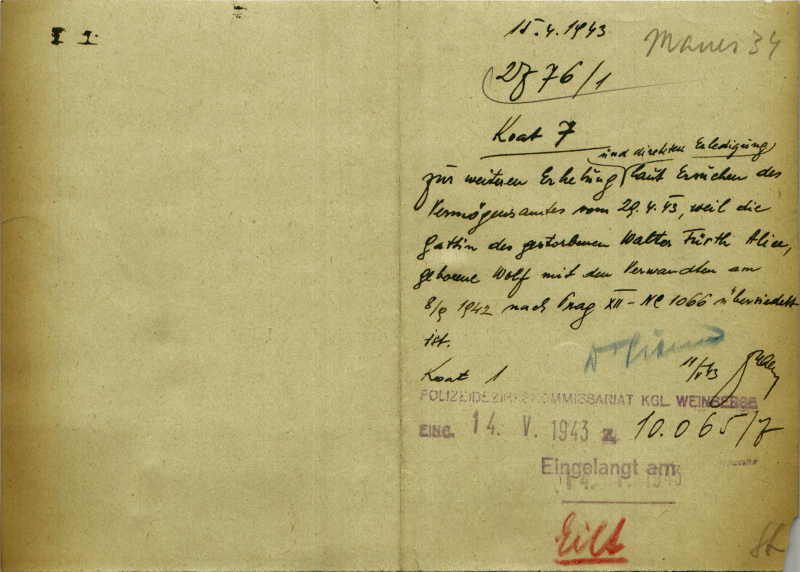 I 1.
15.4.1943
Maues 34
27 76/1
Koat 7
und direkten Erledigung
zur weiteren Erhebung laut Ersuchen des
Vermögensamtes vom 29.4.43, weil die
Gattin des gestorbenen Walter Fürth Alice,
geborene Wolf mit den Verwandten am
8/9 1942 nach Prag XII - NC 1066 übersiedelt
ist.
Koat 1
11/V 43
POLIZEIBEZIRKSKOMMISSARIAT KGL. WEINBERGE
EING. 14. V. 1943 Z. 10.065/7
Eingelangt am
14. V. 1943
Eilt